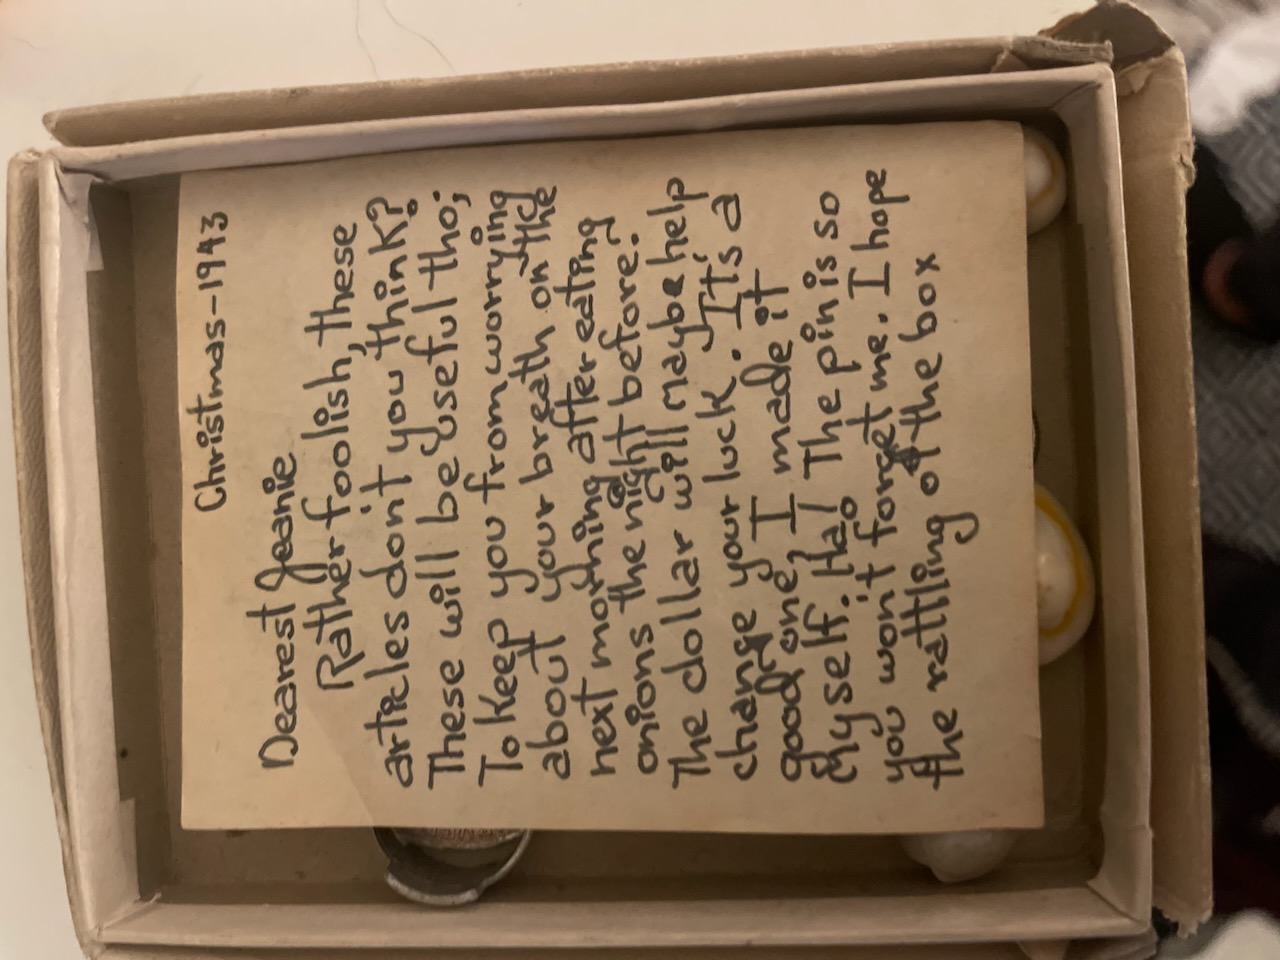 Christmas-1943
Dearest Jeanie
Rather foolish, these
articles don't you think?
These will be useful tho;
To keep you from worrying
about your breath on the
next morning after eating
onions the night before.
The dollar will maybe help
change your luck. It's a
good one, I made it
myself. Ha! The pin is so
you won't forget me. I hope
the rattling of the box